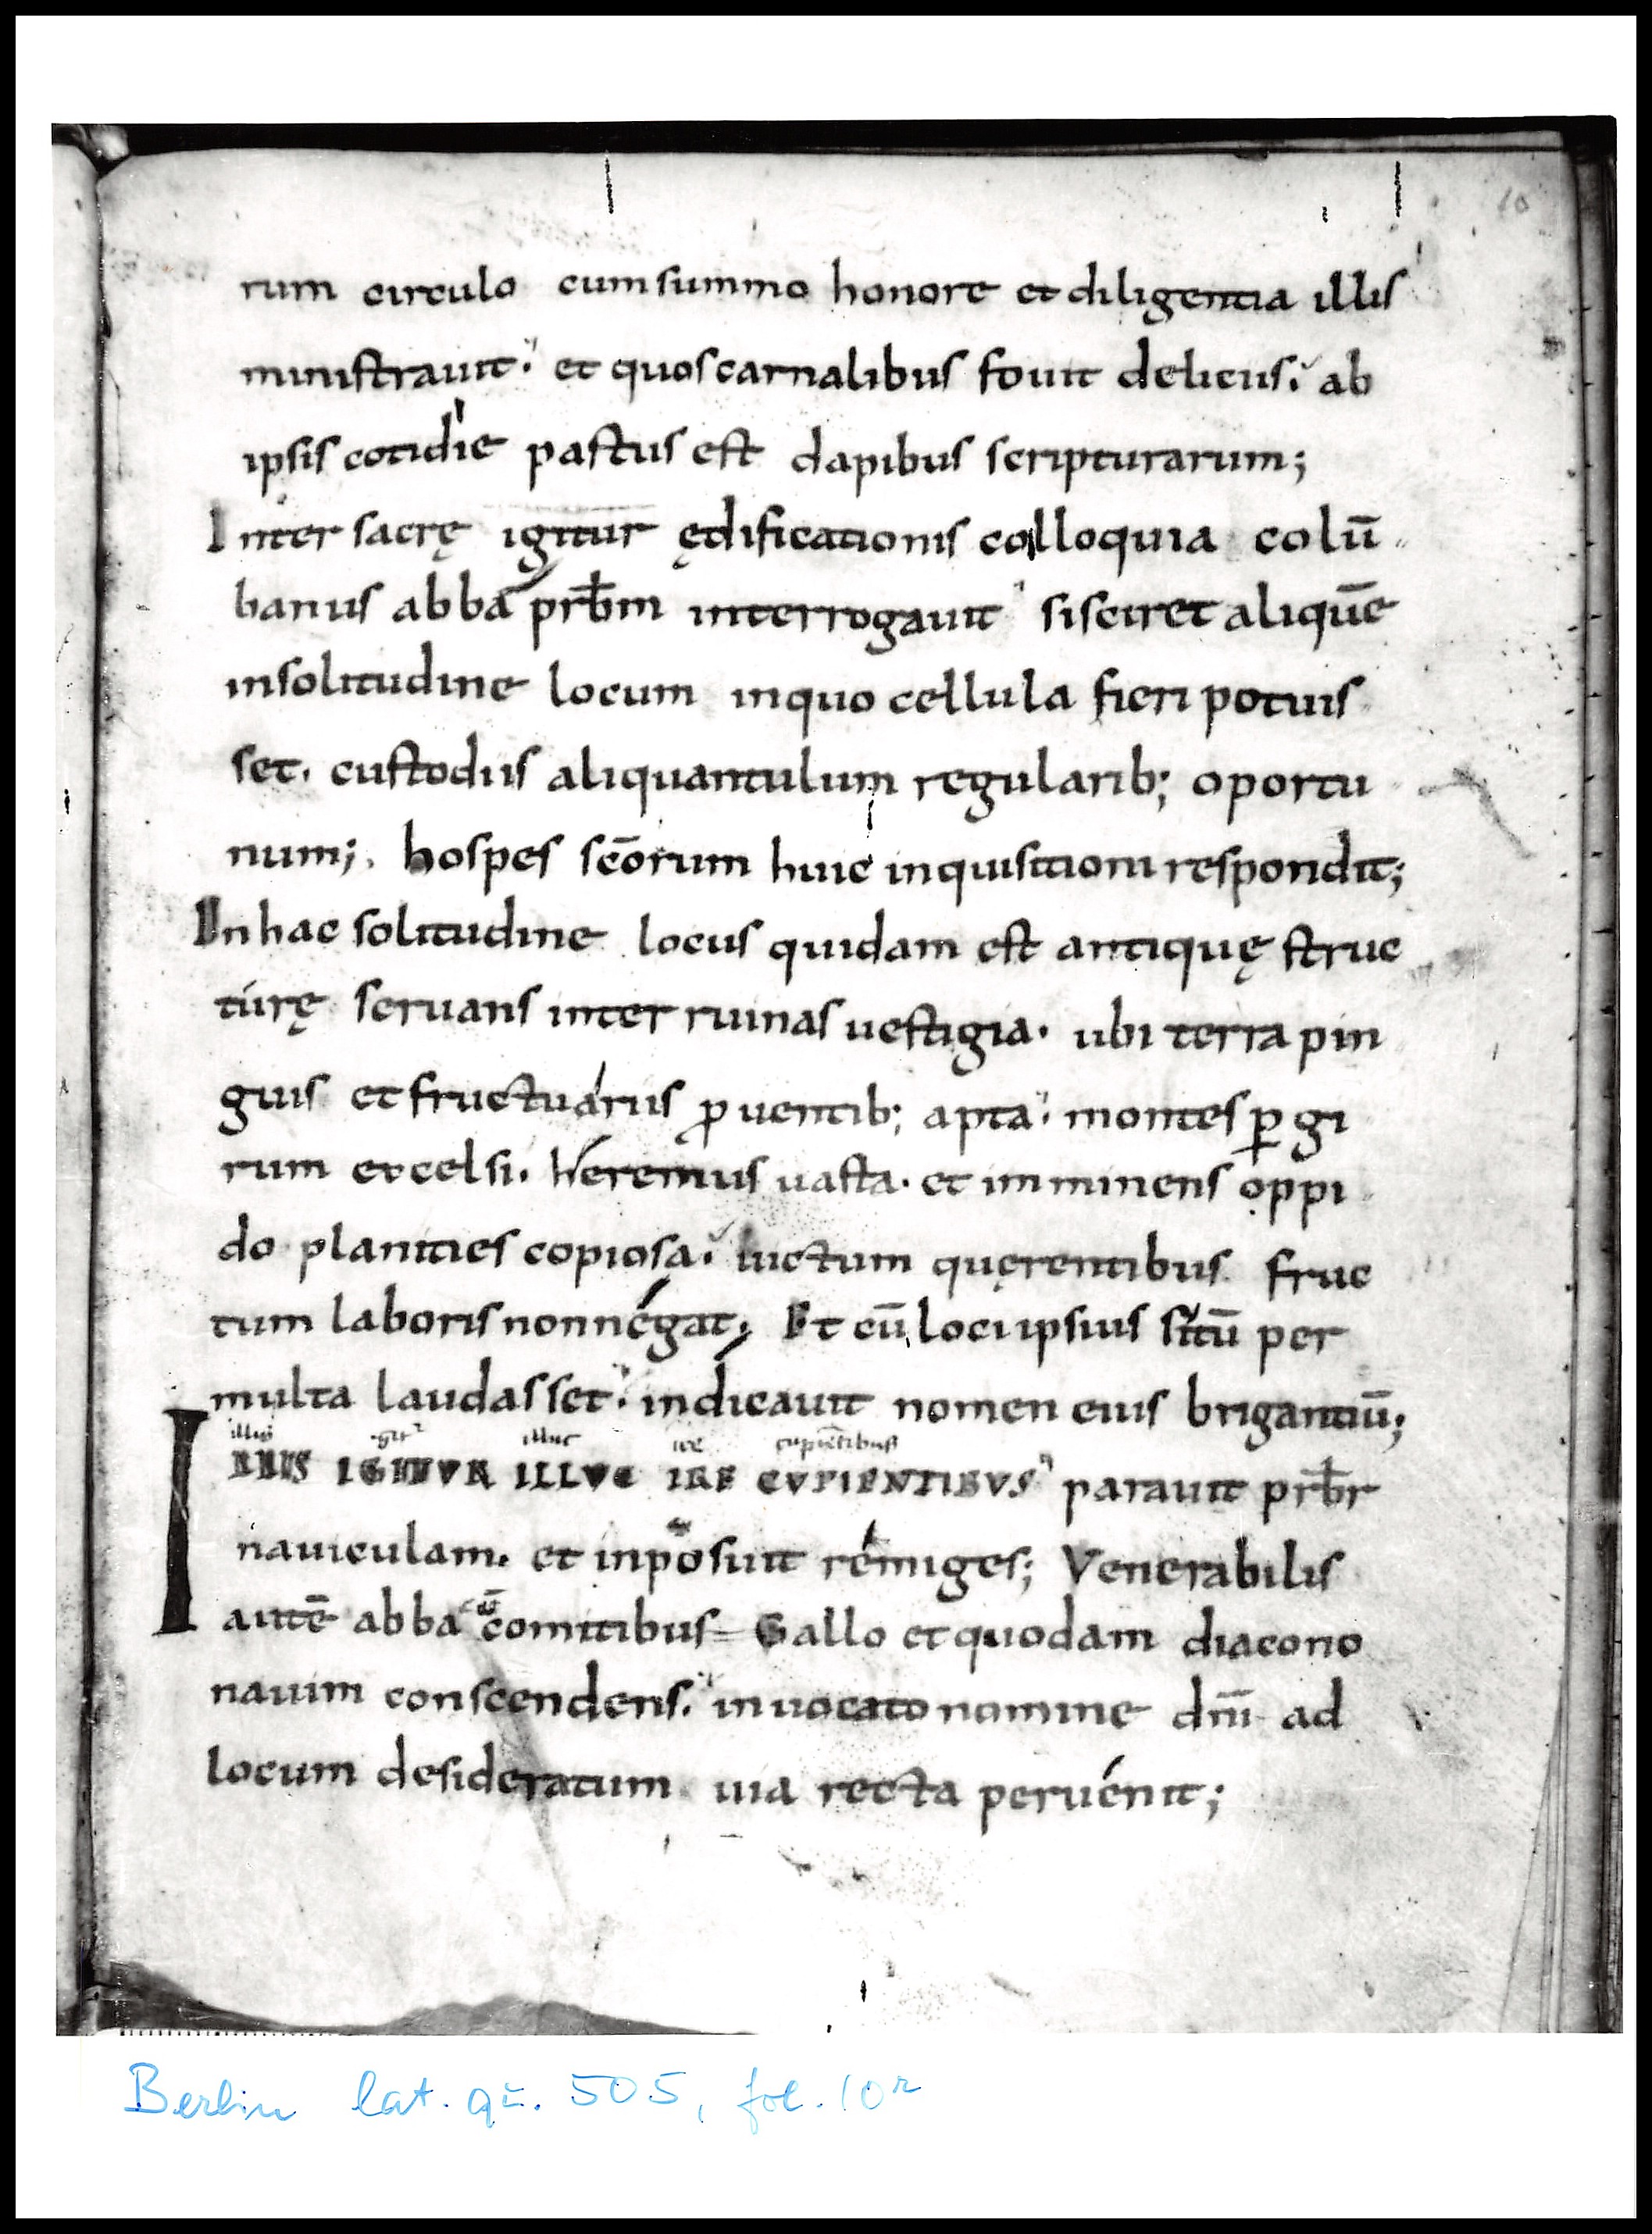 10
rum circulo cum summo honore et diligentia illis
ministrauit· et quos carnalibus fouit deliciis· ab
ipsis cotidie pastus est dapibus scripturarum;
Inter sacrę igitur ędificationis colloquia colū
banus abba prb̄m interrogauit si sciret aliquē
in solitudine locum in quo cellula fieri potuis
set· custodiis aliquantulum regularib; oportu
num; hospes sc̄orum huic inquisitioni respondit;
In hac solitudine locus quidam est antiquę struc
turę seruans inter ruinas uestigia· ubi terra pin
guis et fructuariis ꝓuentib; apta· montes ꝑ gi
rum excelsi· heremus uasta· et imminens oppi
do planities copiosa· uictum quęrentibus fruc
tum laboris non négat; Et cū loci ipsius sitū per
multa laudasset· indicauit nomen eius brigantiū;
illis git᷑ illuc ire cupiētibus
ILLIS IGITVR ILLVC IRE CVPIENTIBVS parauit prb̄r
nauiculam· et inposuit rémiges; Venerabilis
autē abba cū comitibus Gallo et quodam diacono
nauim conscendens· inuocato nomine dn̄i ad
locum desideratum uia recta peruénit;
Berlin lat. qu. 505, fol. 10r